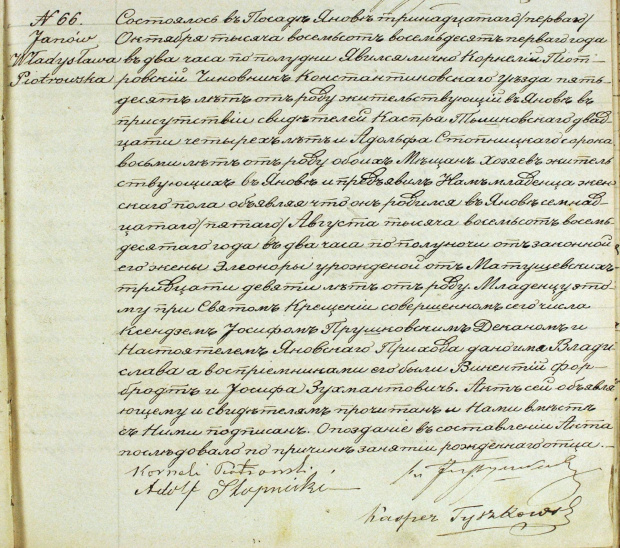 N 66.
Janów
Władysława
Piotrowska
Состоялось въ Посадѣ Яновѣ тринадцатаго/перваго/
Октября тысяча восемьсотъ восемьдесятъ перваго года
въ два часа по полудни. Явился лично Корнелій Піот-
ровскій Чиновникъ Константиновскаго уѣзда пять-
десятъ лѣтъ отъ роду жительствующій въ Яновѣ въ
присутствіи свидѣтелей Каспра Тышковскаго двад-
цати четырехъ лѣтъ и Адольфа Стопницкаго сорока
восьми лѣтъ отъ роду обоихъ Мѣщанъ Хозяевъ житель-
ствующихъ въ Яновѣ и предъявилъ Намъ младенца жен-
скаго пола объявляя что онъ родился въ Яновѣ семнад-
цатаго/пятаго/ Августа тысяча восемьсотъ восемь-
десятаго года въ два часа по полуночи отъ законной
его жены Элеоноры урожденой отъ Матушевскихъ
тридцати девяти лѣтъ отъ роду. Младенцу это-
му при Святомъ Крещеніи совершенномъ сего числа
Ксендзомъ Іосифомъ Прушковскимъ Деканомъ и
Настоятелемъ Яновскаго Прихода дано имя Влади-
слава а воспріемниками его были Викентій фор-
бродтъ и Іосифа Зухмантовичъ. Актъ сей объявля-
ющему и свидѣтелямъ прочитанъ и Нами вмѣстѣ
съ Ними подписанъ. Опозданіе въ составленіи Акта
послѣдовало по причинѣ занятій рожденнаго отца.
Korneli Piotrowski
Adolf Stopnicki
Kasper Tyszkowski